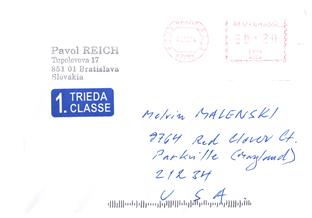 Pavol REICH
Topolovova 17
851 01 Bratislava
Slovakia
1. TRIEDA
CLASSE
Melvin MALENSKI
9764 Red Clover Ct.
Parkville (Maryland)
21234
U S A.